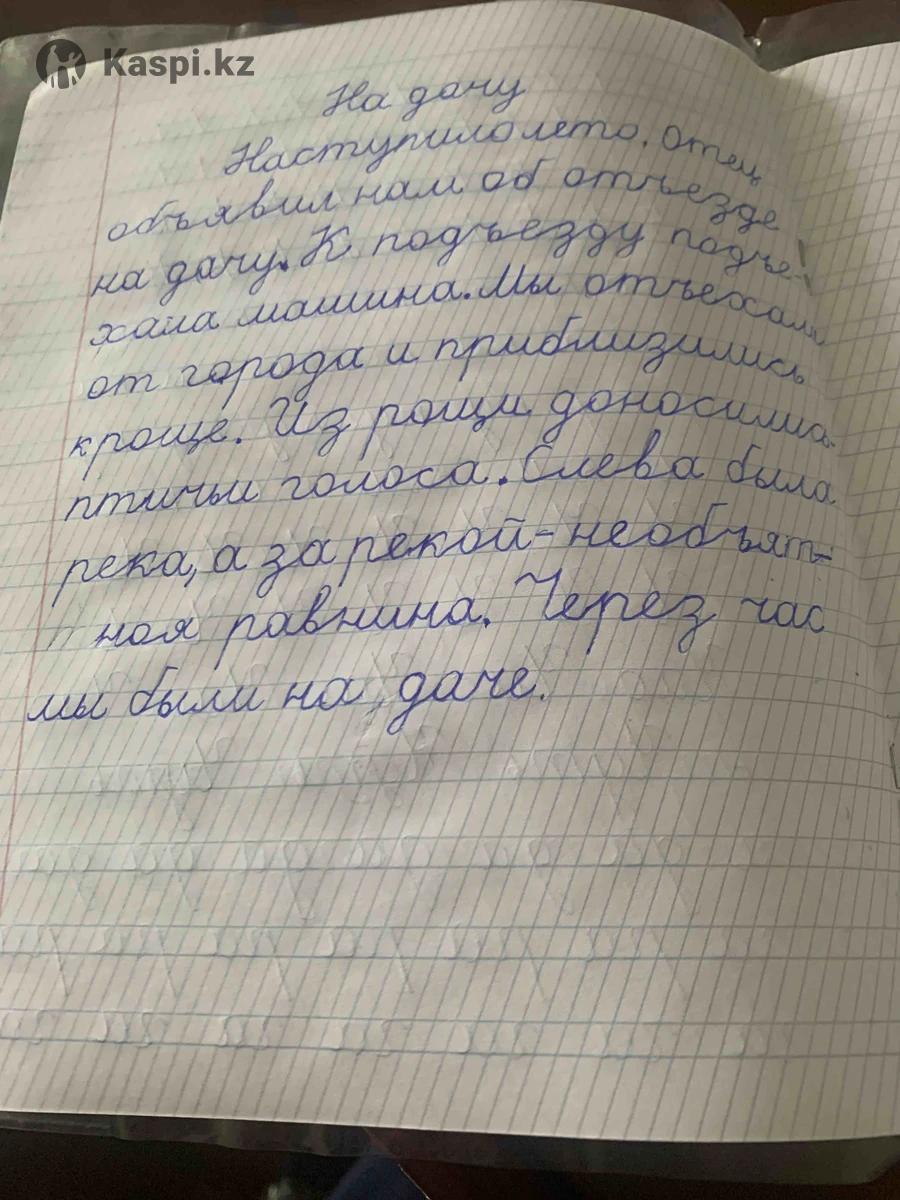 Kaspi.kz
На дачу
Наступило лето. Отец
объявил нам об отъезде
на дачу. К подъезду подъе-
хала машина. Мы отъехали
от города и приблизились
к роще. Из рощи доносились
птичьи голоса. Слева была
река, а за рекой - необъят-
ная равнина. Через час
мы были на даче.